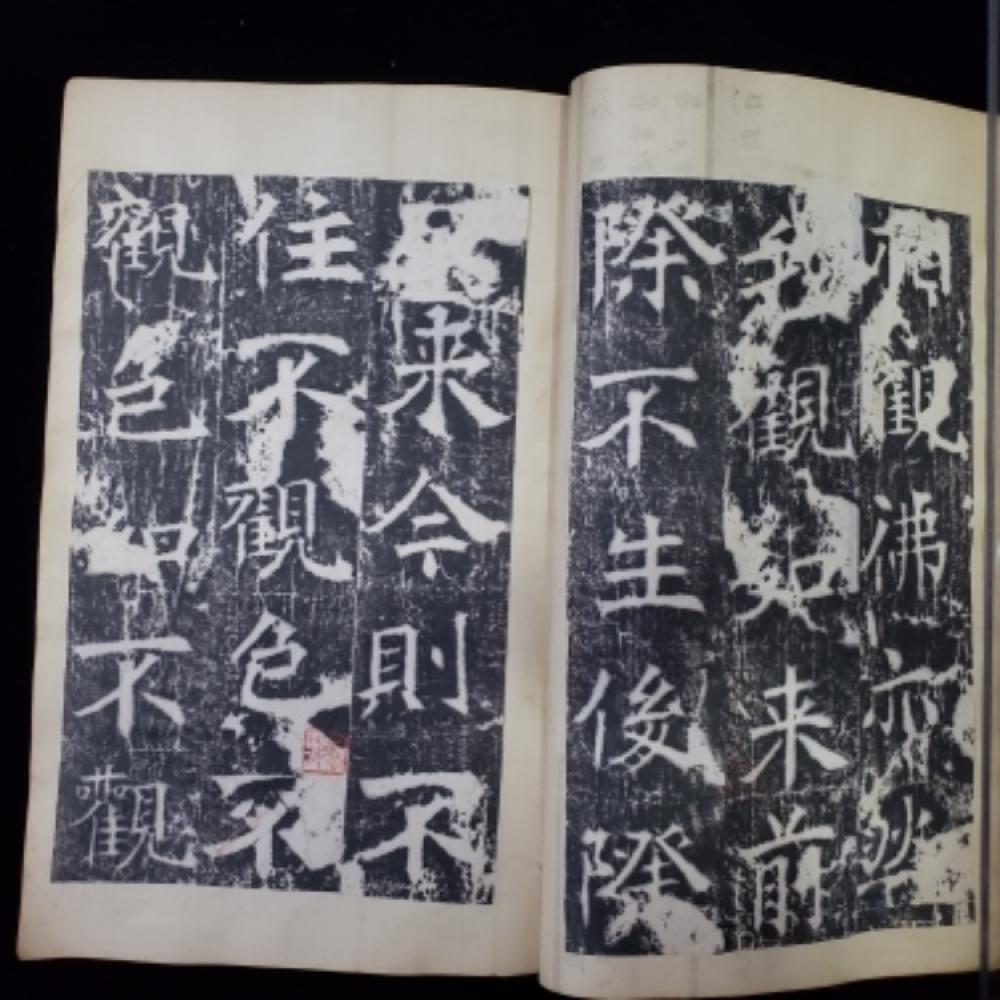 觀佛亦
我觀如来前
際不生後際
来今則不
住不觀色不
觀色如不觀